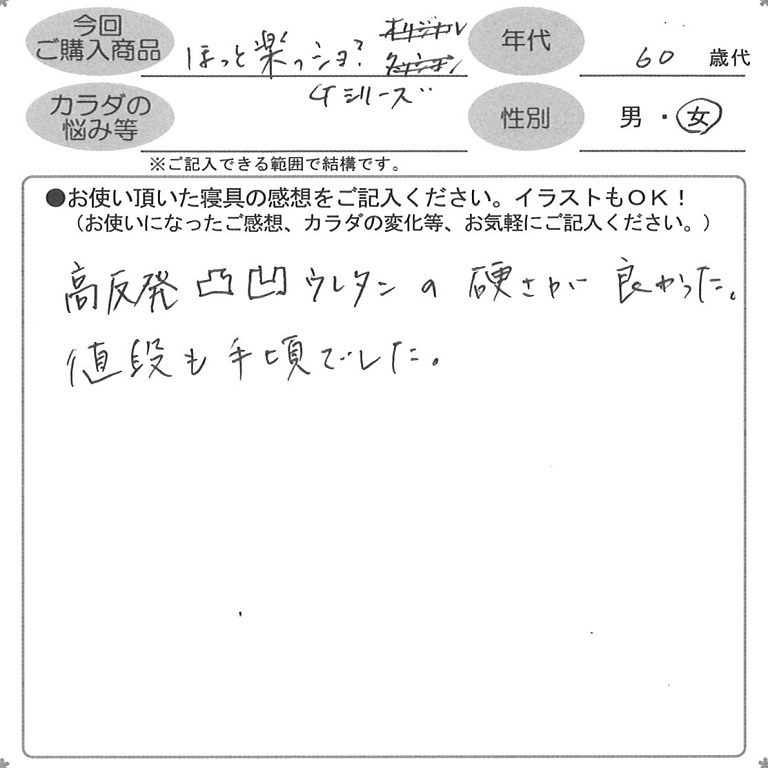 今回
ご購入商品
ほっと楽っショ？
Gシリーズ
年代
60 歳代
カラダの
悩み等
性別
男・女
※ご記入できる範囲で結構です。
●お使い頂いた寝具の感想をご記入ください。イラストもOK！
（お使いになったご感想、カラダの変化等、お気軽にご記入ください。）
高反発 凸凹 ウレタンの 硬さが 良かった。
値段も手頃でした。